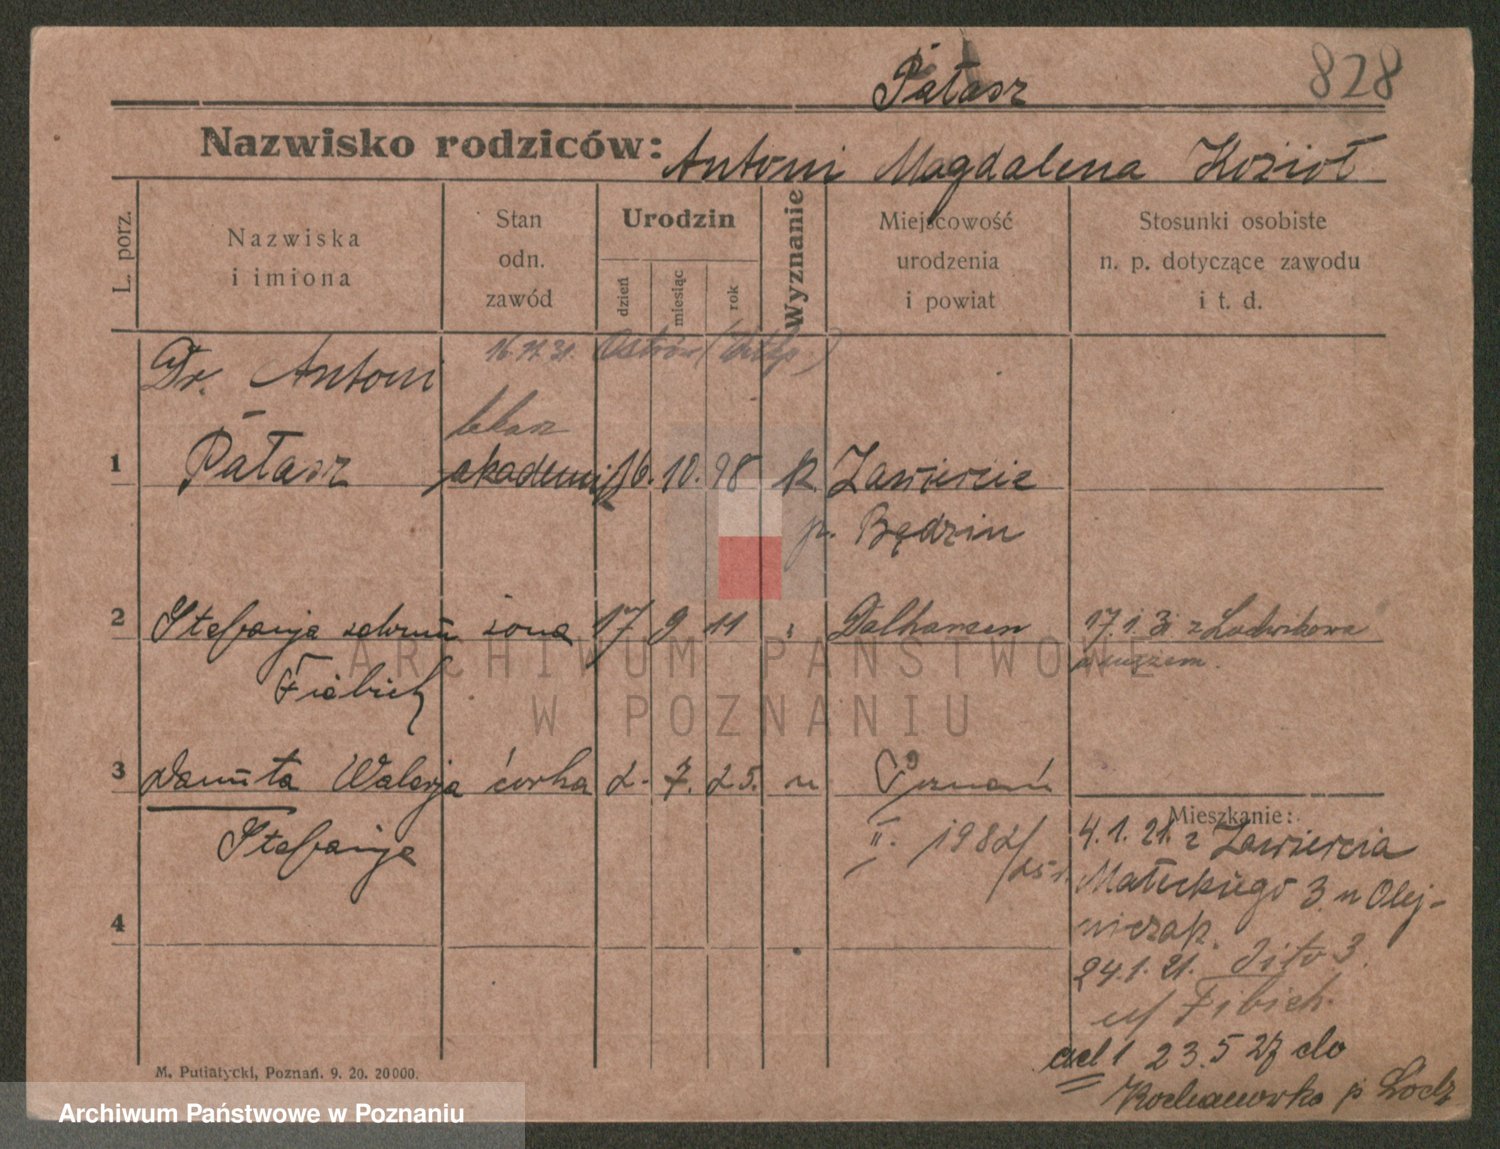 828
Pałasz
Nazwisko rodziców: Antoni Magdalena Kozioł
L. porz.
Nazwiska
i imiona
Stan
odn.
zawód
Urodzin
dzień
miesiąc
rok
Wyznanie
Miejscowość
urodzenia
i powiat
Stosunki osobiste
n. p. dotyczące zawodu
i t. d.
16.11.31. Ostrów (Wlkp.)
Dr. Antoni
lekarz
1 Pałasz akademik 16. 10. 98 k Zawiercie
p. Będzin
2 Stefanja żona 17 9 11 Dalhausen 17.1.31 z Ludwikowa
z mężem.
Fiebich
3 Danuta Walerja córka 2. 7. 25. n Poznań
Stefanja
II. 1982/25
Mieszkanie:
4.1.21. z Zawiercia
Małeckiego 3 u Olej-
niczak.
4
24.1.21. dito 3.
u/ Fibich.
ad 1 23.5 27 do
Kochanówka p Łódź
M. Putiatycki, Poznań. 9. 20. 20000.
ARCHIWUM PAŃSTWOWE
W POZNANIU
Archiwum Państwowe w Poznaniu